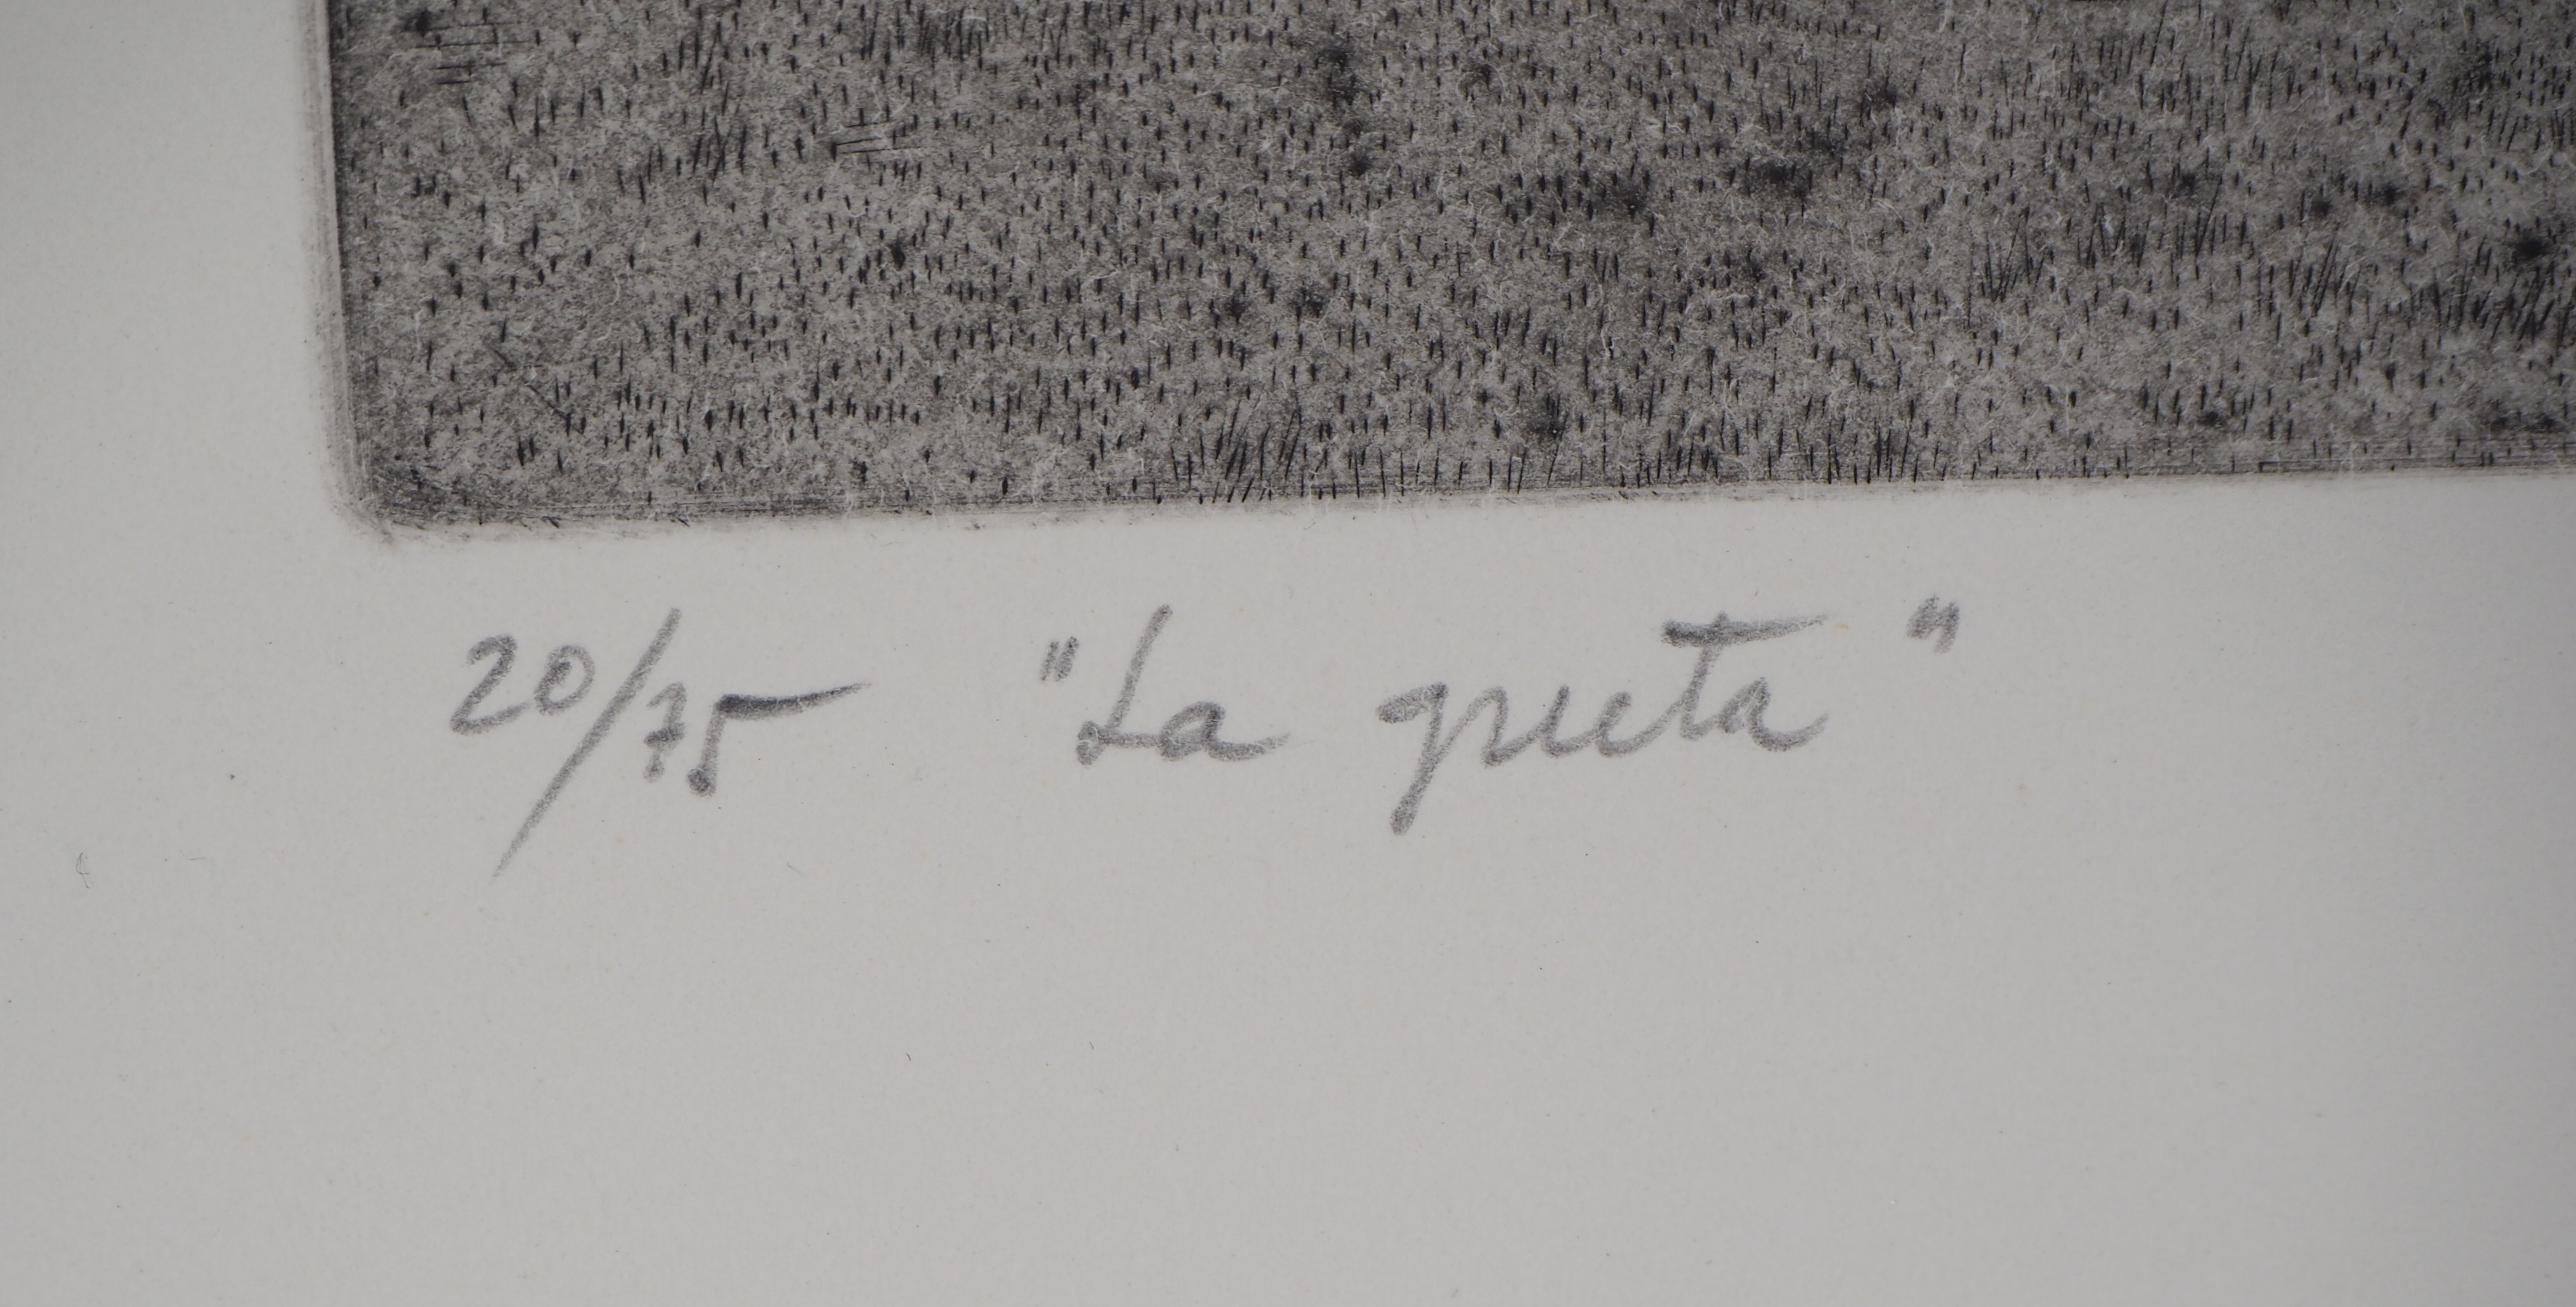 20/75 "La grieta"